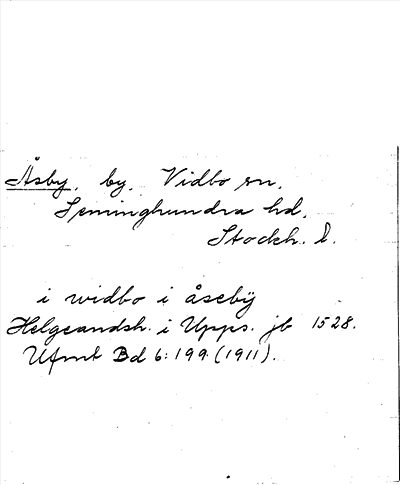 Åsby, by, Vidbo sn,
Seminghundra hd,
Stockh. l.
i widbo i åsebÿ
Helgeandsh. i Upps. jb 1528.
Ufmt Bd 6: 199. (1911).